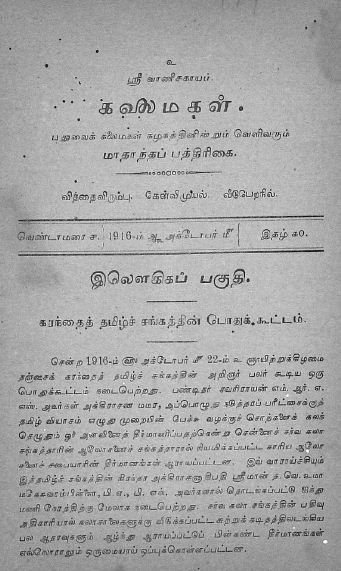 உ
ஸ்ரீ வாணீசகாயம்.
கலைமகள்.
புதுவைக் கலைமகள் கழகத்தினின்றும் வெளிவரும்
மாதாந்தப் பத்திரிகை.
வித்தைவிரும்பு. கேள்விமுயல். வீடுபெறநில்.
வெண்டாமரை ௪. 1916-ம் ௵ அக்டோபர் ௴ இதழ் ௧௦.
இலௌகிகப் பகுதி.
கரந்தைத் தமிழ்ச் சங்கத்தின் பொதுக் கூட்டம்.
சென்ற 1916-ம் ௵ அக்டோபர் ௴ 22-ம் உ ஞாயிற்றுக்கிழமை
தஞ்சைக் கரந்தைத் தமிழ்ச் சங்கத்தின் அறிஞர் பலர் கூடிய ஒரு
பொதுக்கூட்டம் நடைபெற்றது. பண்டிதர் சவரிராயன் எம். ஆர். ஏ.
எஸ். அவர்கள் அக்கிராசன மமர, அப்பொழுது
தமிழ் வியாசம் எழுது முறையின் பேச்சு வழக்குச் சொற்களைக் கலந்
தெழுதும் ஓர் அளவினைத் நிர்மாணிப்பதற்கென்று சென்னைச் சர்வ கலா
சங்கத்தாரின் ஆலோசனைச் சங்கத்தாரால் நியமிக்கப்பட்ட காரிய ஆலோ
சனைச் சபையாரின் தீர்மானங்கள் ஆராயப்பட்டன. இவ் வாராய்ச்சியும்
இத்தமிழ்ச் சங்கத்தின் கிரந்தர அக்கிராசனாதிபதி ஸ்ரீமான் த. வெ. உமா
மகேசுவரம்பிள்ளை, பி. ஏ., பி. எல். அவர்களால் தொடங்கப்பட்டு ஐந்து
மணி நேரத்திற்கு மேலாக நடைபெற்றது. சர்வ கலா சங்கத்தின் பதிவு
அதிகாரியால் கலாசாலைகளுக்கு விடுக்கப்பட்ட சுற்றுக் கடிதத்திலடங்கிய
பல ஆதரவுகளும் ஆழ்ந்து ஆராயப்பட்டுப் பின்கண்ட தீர்மானங்கள்
எல்லோராலும் ஒருமையாய் ஒப்புக்கொள்ளப்பட்டன.